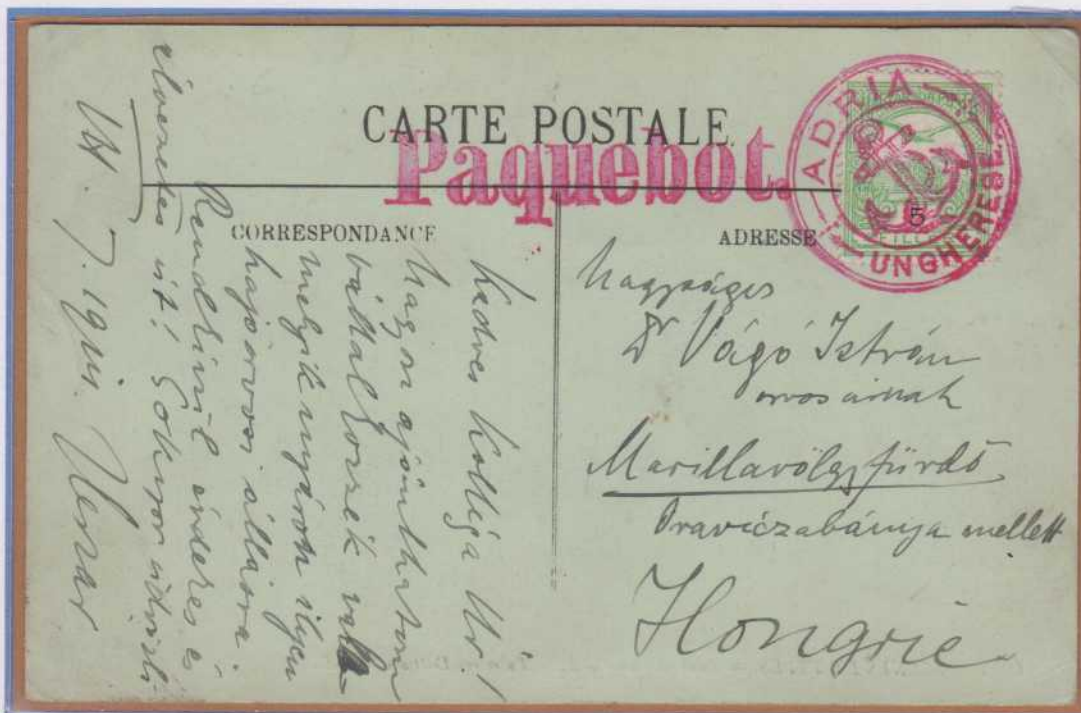 CARTE POSTALE
Paquebot.
ADRIA
UNGHERESE
5
CORRESPONDANCE
ADRESSE
Kedves Kolléga Úr!
Nagyon ajánlhatom
vállalkozzék vala
melyik nyáron ilyen
hajóorvosi állásra
Rendkívül érdekes és
élvezetes út! Sokszor üdvözli
14. 7. 1911.
Nagyságos
Dr Vágó István
orvos úrnak
Marillavölgyfürdő
Oraviczabánya mellett
Hongrie